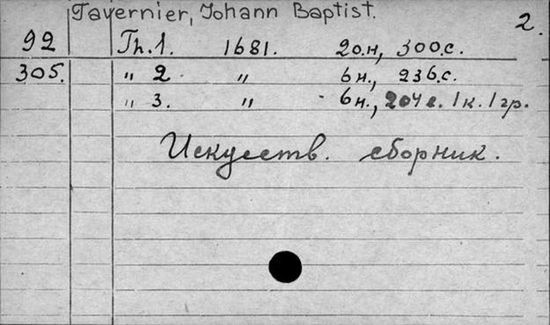 Tavernier, Johann Baptist.
2.
92 Th. 1. 1681. 20н, 300.с.
305. " 2 " 6н., 236.с.
" 3. " 6н., 204 с. 1к. 1гр.
Искуств. сборник.